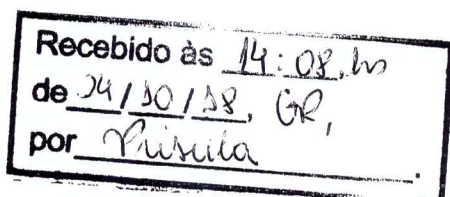 Recebido às 14:08 hs
de 24/10/18, GR,
por Priscila.